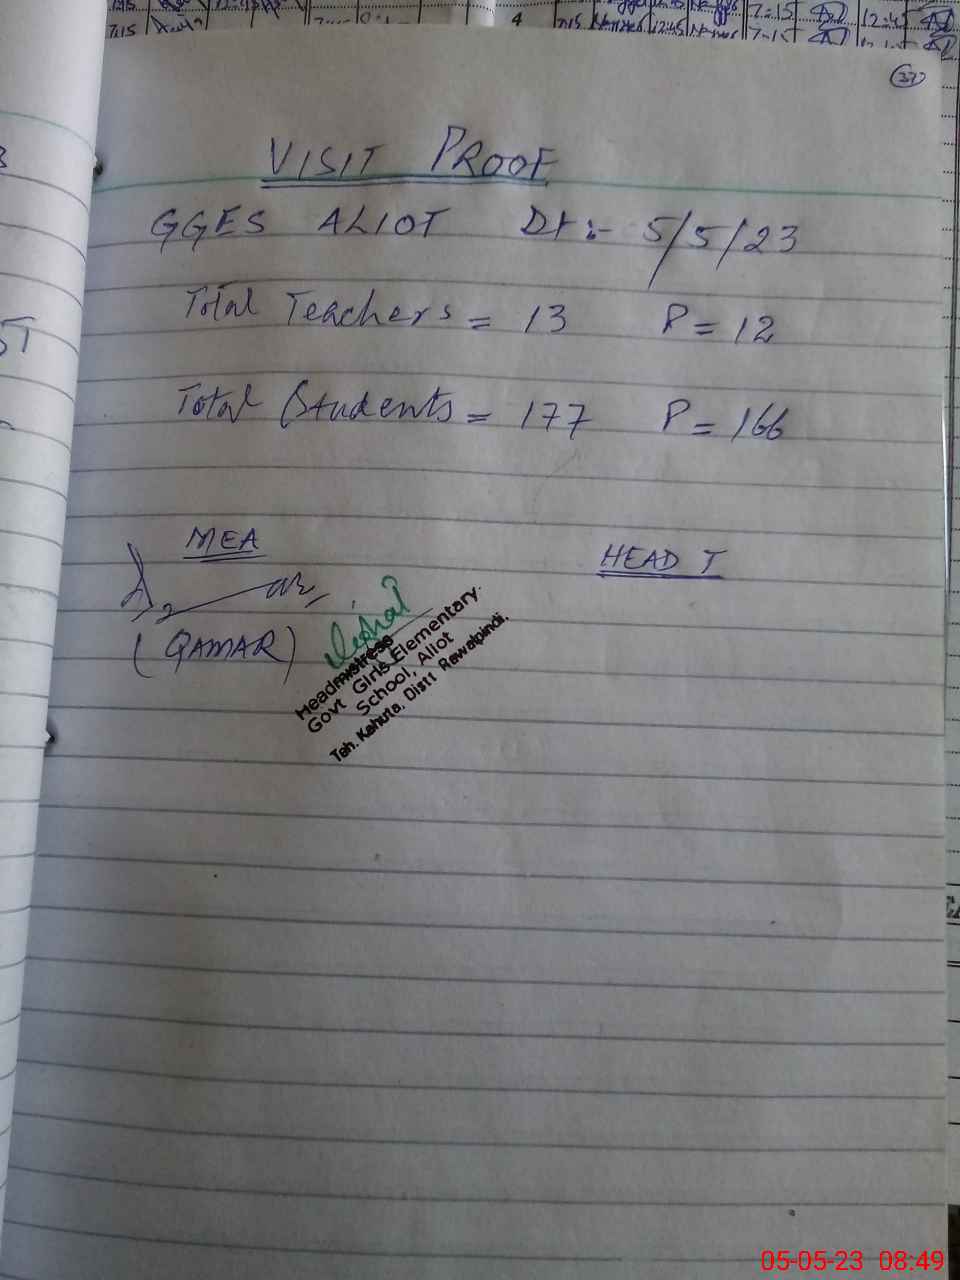 37
VISIT PROOF
GGES ALIOT Dt:- 5/5/23
Total Teachers = 13 P = 12
Total Students = 177 P = 166
MEA
HEAD T
(QAMAR)
Headmistress
Govt Girls Elementary
School, Aliot
Teh. Kahuta, Distt Rawalpindi.
4
7:15
12:45
7:15
05-05-23 08:49